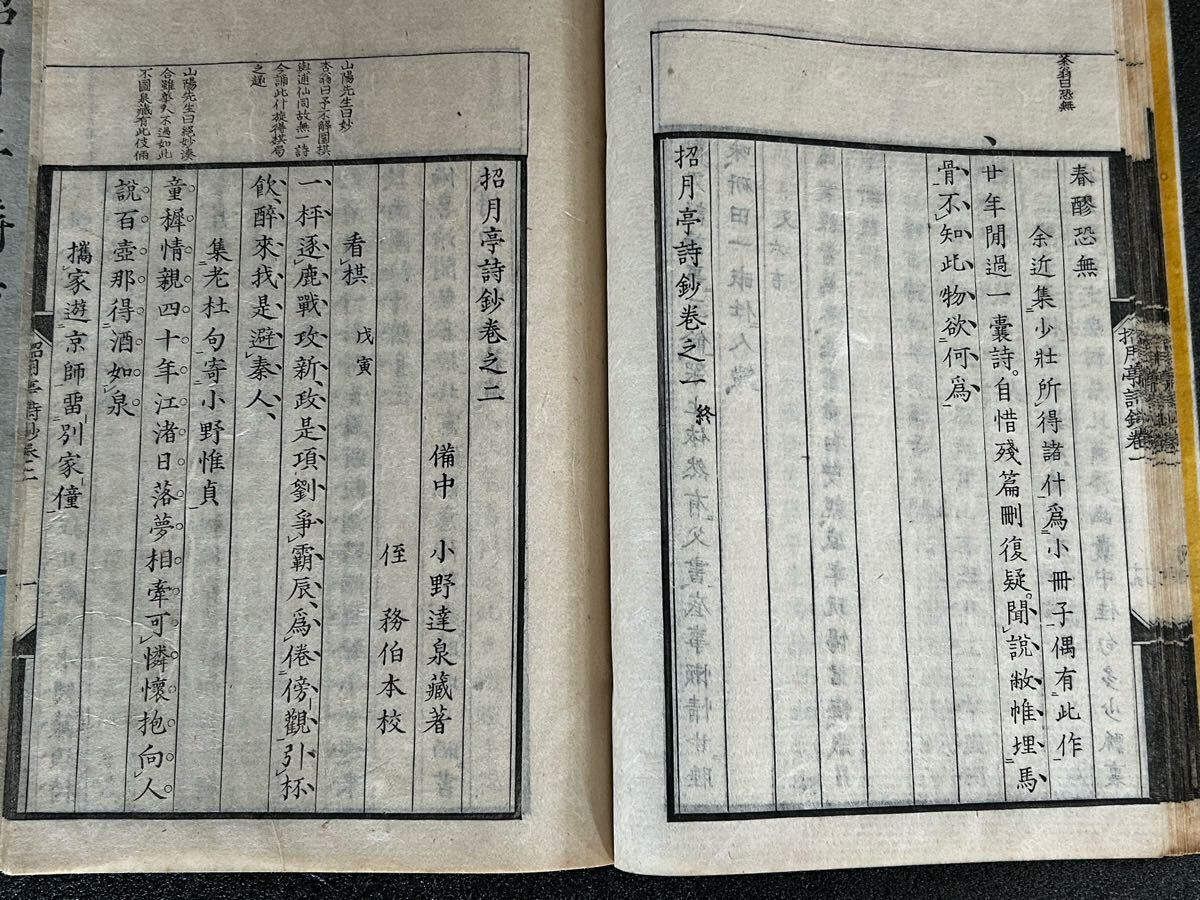 茶翁曰恐無
春醪恐無
余近集少壯所得諸什爲小冊子偶有此作
廿年閒過一囊詩。自惜殘篇刪復疑。聞說敝帷埋馬
骨不知此物欲何爲
招月亭詩鈔卷之一 終
招月亭詩鈔卷一
山陽先生曰妙
杏翁曰予不解圍棋
與逋仙同故無一詩
今誦此什旋得棋局
之趣
山陽先生曰絕妙湊
合雖尊大不過如此
不圖泉藏有此伎倆
招月亭詩鈔卷之二
備中 小野達泉藏著
侄 務伯本校
看棋 戊寅
一枰逐鹿戰攻新政是項劉爭霸辰爲倦傍觀引杯
飮醉來我是避秦人
集老杜句寄小野惟貞
童穉情親四十年江渚日落夢相牽可憐懷抱向人
說百壺那得酒如泉
攜家遊京師畱別家僮
招月亭詩鈔卷二
一